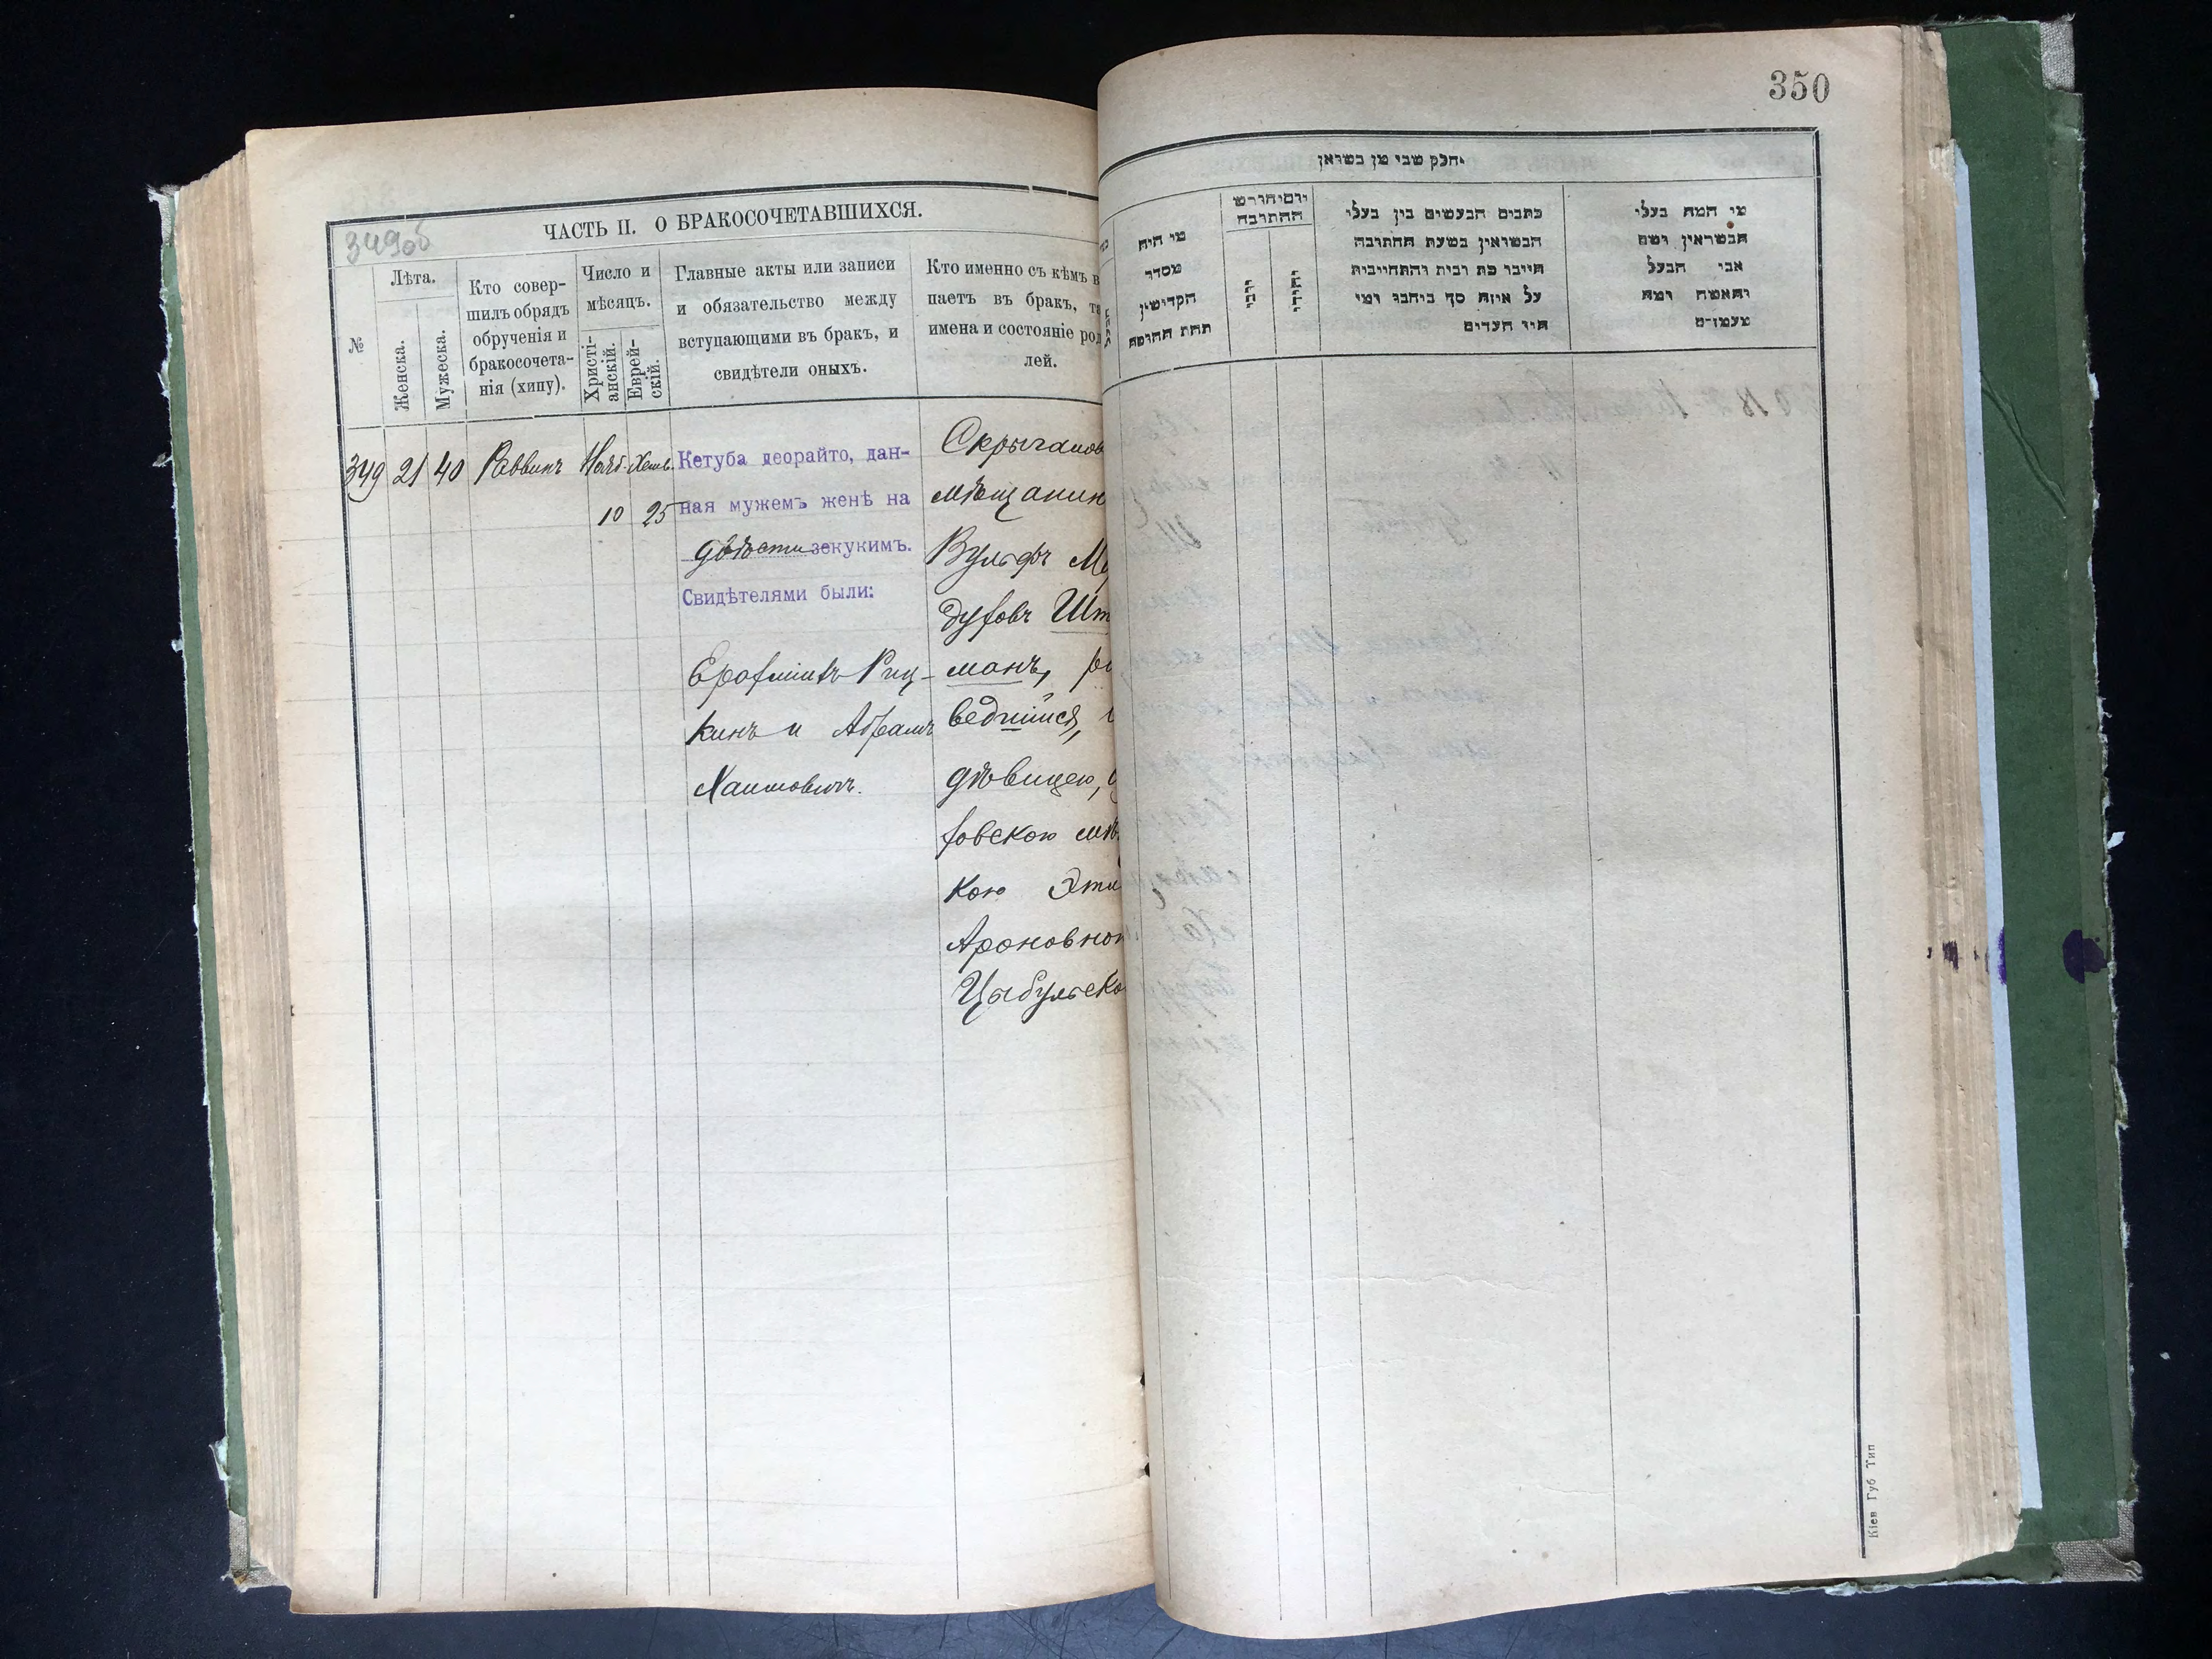 349об
ЧАСТЬ II. О БРАКОСОЧЕТАВШИХСЯ.
№
Лѣта.
Женска.
Мужеска.
Кто совер-
шилъ обрядъ
обрученія и
бракосочета-
нія (хипу).
Число и
мѣсяцъ.
Христі-
анскій.
Еврей-
скій.
Главные акты или записи
и обязательство между
вступающими въ бракъ, и
свидѣтели оныхъ.
Кто именно съ кѣмъ в
паетъ въ бракъ, та
имена и состояніе род
лей.
349 21 40 Раввинъ Нояб. Хешв.
10 25
Кетуба деорайто, дан-
ная мужемъ женѣ на
двѣсти зекукимъ.
Свидѣтелями были:
Риц-
кинъ и Абрамъ
Хаимовичъ.
мѣщанин
Вульфъ М
Шт
манъ, ра
ведшійся,
дѣвицею,
ровскою мѣ
кою Эти
Ароновною
Цыбульско
350
חלק שני מן נשואין
מי היה
מסדר
הקדושין
תחת החופה
יום וחודש
החתונה
כתבים הנעשים בין בעלי
הנשואין בשעת החתונה
חיובי כת ובית והתחייבות
על איזה סך כיתבו ומי
היו העדים
מי המה בעלי
הנשואין ושם
אבי הבעל
והאשה ומה
מעמדם
Кіев Губ Тип